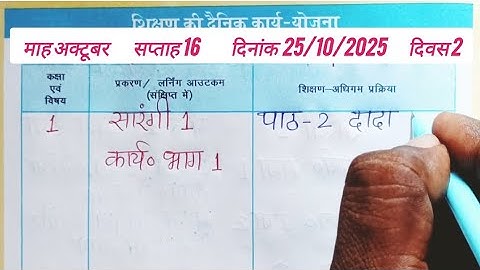 शिक्षण की दैनिक कार्य-योजना
माह अक्टूबर सप्ताह 16 दिनांक 25/10/2025 दिवस 2
कक्षा एवं विषय
प्रकरण/ लर्निंग आउटकम (संक्षिप्त में)
शिक्षण-अधिगम प्रक्रिया
1 सारंगी 1 पाठ-2 दादा
कार्य० भाग 1